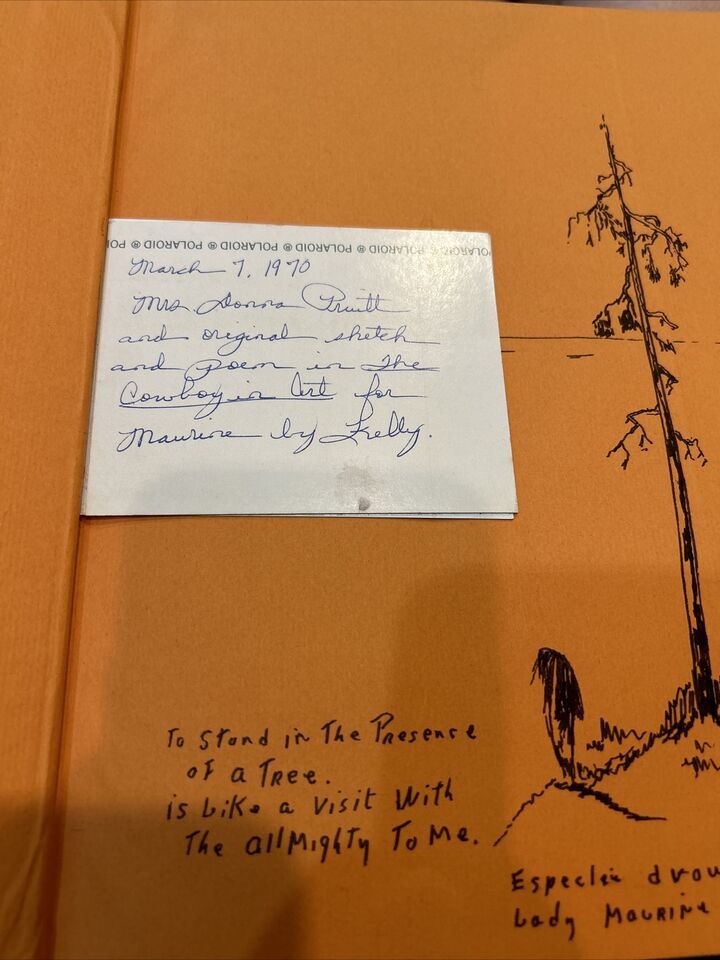 POLAROID ® POLAROID ® POLAROID ® POLAROID ® POLAROID ®
March 7, 1970
Mrs. Donna Pruitt
and original sketch
and poem in The
Cowboy in Art for
Maurine by
To Stand in The Presence
of a Tree.
is Like a Visit With
The allMighty To Me.
Especlie
Lady Maurine